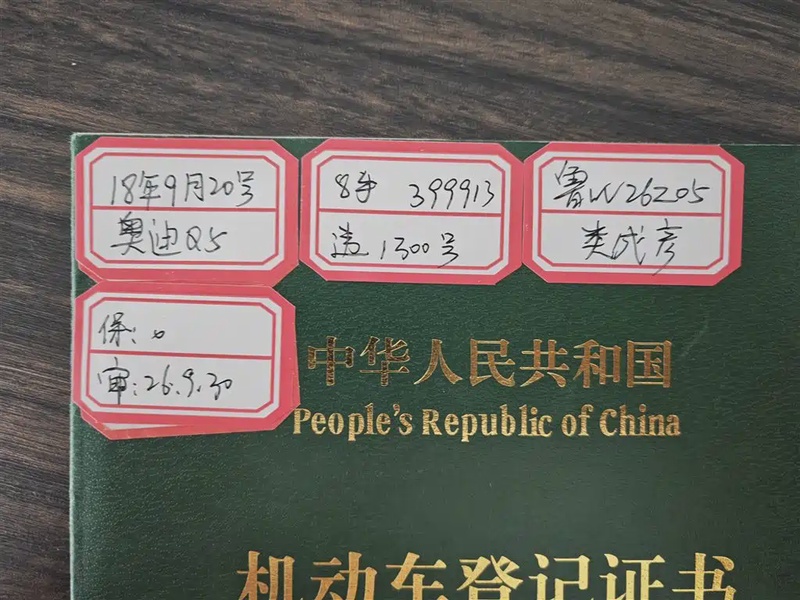 18年9月20号
奥迪Q5
8手 399913
造1300号
鲁VV26Z05
类成彦
保:
审:26.9.30
中华人民共和国
People's Republic of China
机动车登记证书